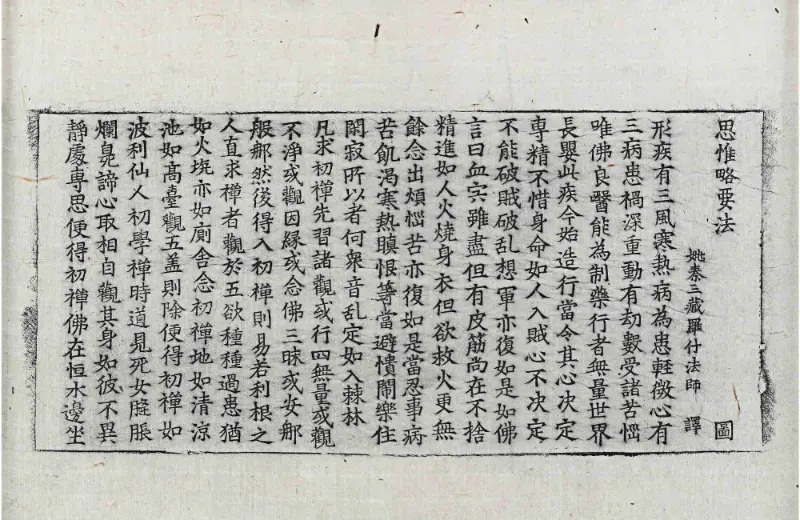 思惟略要法　圖
姚秦三藏羅什法師　譯
形疾有三風寒熱病為患輕微心有
三病患禍深重動有劫數受諸苦惱
唯佛良醫能為制藥行者無量世界
長嬰此疾今始造行當令其心决定
專精不惜身命如人入賊心不决定
不能破賊破乱想軍亦復如是如佛
言曰血宍雖盡但有皮筋尚在不捨
精進如人火燒身衣但欲救火更無
餘念出煩惱苦亦復如是當忍事病
苦飢渴寒熱瞋恨等當避憒鬧樂住
閑寂所以者何衆音乱定如入棘林
凡求初禪先習諸觀或行四無量或觀
不淨或觀因緣或念佛三昧或安那
般那然後得入初禪則易若利根之
人直求禪者觀於五欲種種過患猶
如火坑亦如廁舍念初禪地如清涼
池如高臺觀五盖則除便得初禪如
波利仙人初學禪時道見死女膖脹
爛臰諦心取相自觀其身如彼不異
靜處專思便得初禪佛在恒水邊坐